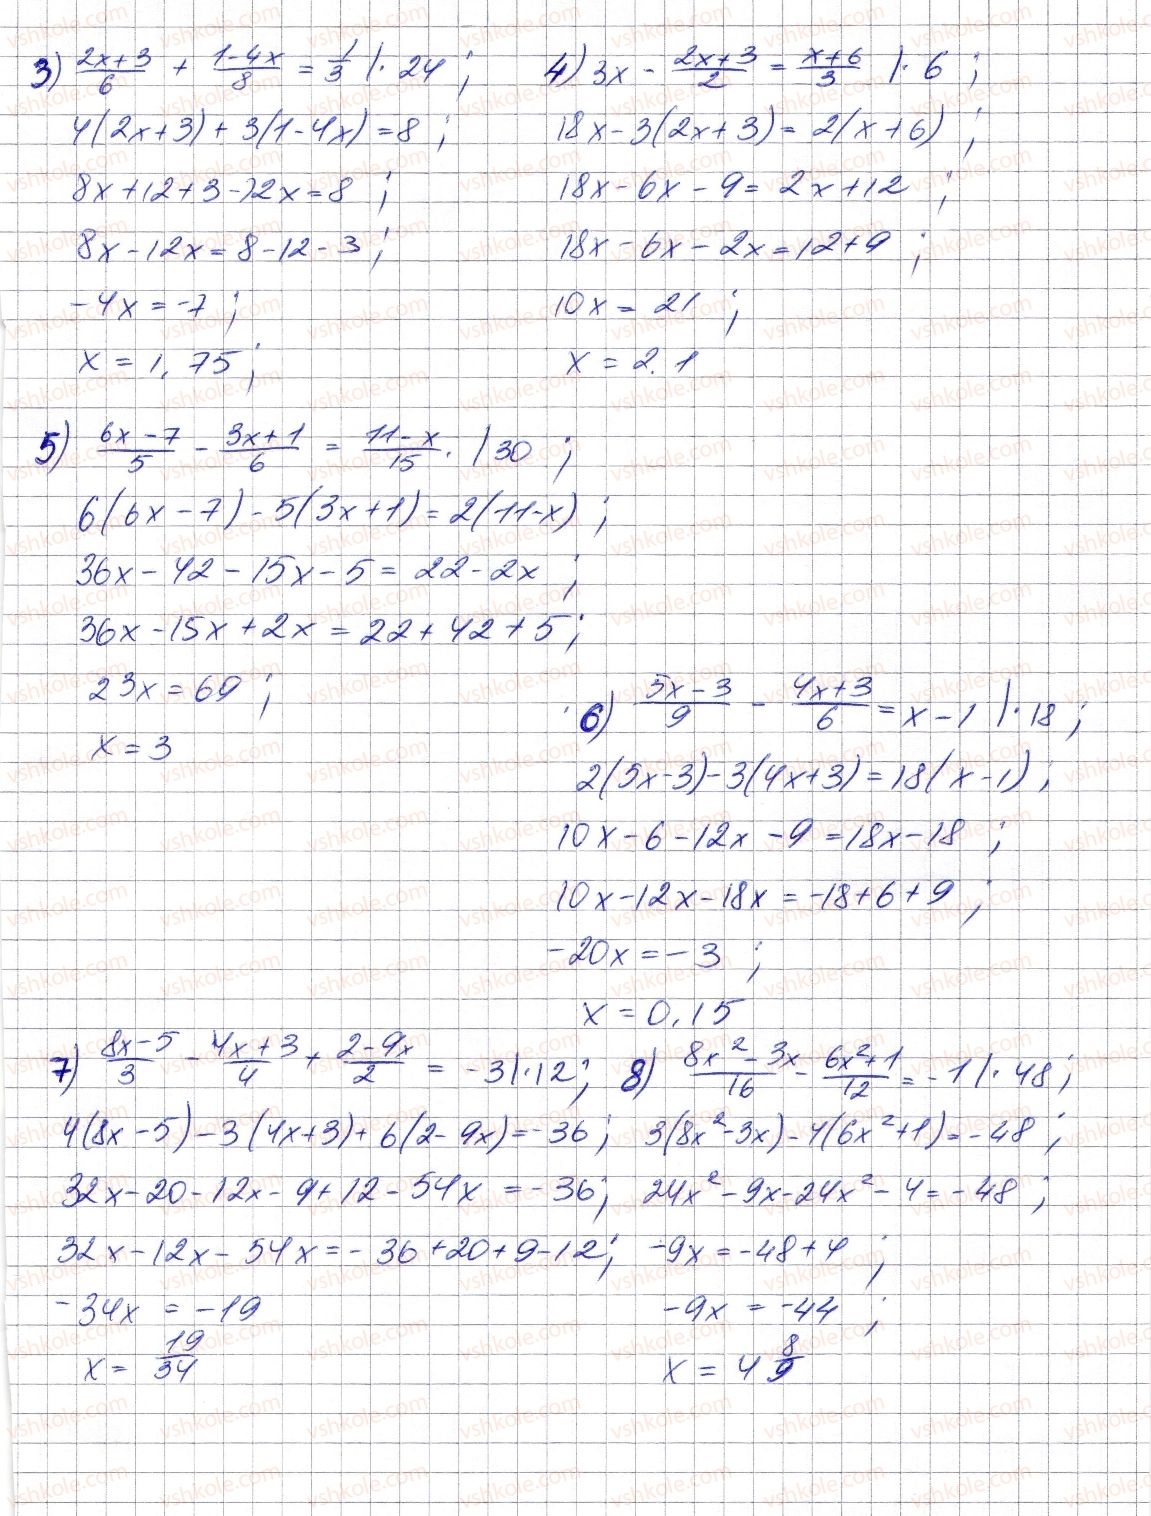 3) (2x+3)/6 + (1-4x)/8 = 1/3 |· 24 ;
4(2x+3)+3(1-4x)=8 ;
8x+12+3-12x=8 ;
8x-12x=8-12-3 ;
-4x=-7 ;
x=1,75 ;
4) 3x - (2x+3)/2 = (x+6)/3 |· 6 ;
18x-3(2x+3)=2(x+6) ;
18x-6x-9=2x+12 ;
18x-6x-2x=12+9 ;
10x=21 ;
x=2.1
5) (6x-7)/5 - (3x+1)/6 = (11-x)/15 · |30 ;
6(6x-7)-5(3x+1)=2(11-x) ;
36x-42-15x-5=22-2x ;
36x-15x+2x=22+42+5 ;
23x=69 ;
x=3
6) (5x-3)/9 - (4x+3)/6 = x-1 |· 18 ;
2(5x-3)-3(4x+3)=18(x-1) ;
10x-6-12x-9=18x-18 ;
10x-12x-18x=-18+6+9 ;
-20x=-3 ;
x=0,15
7) (8x-5)/3 - (4x+3)/4 + (2-9x)/2 = -3 |· 12 ;
4(8x-5)-3(4x+3)+6(2-9x)=-36 ;
32x-20-12x-9+12-54x=-36 ;
32x-12x-54x=-36+20+9-12 ;
-34x=-19
x= 19/34
8) (8x²-3x)/16 - (6x²+1)/12 = -1 |· 48 ;
3(8x²-3x)-4(6x²+1)=-48 ;
24x²-9x-24x²-4=-48 ;
-9x=-48+4 ;
-9x=-44 ;
x=4 8/9
vshkole.com